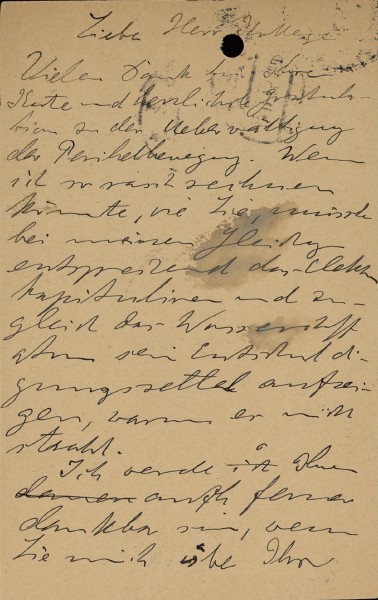 Lieber Herr Kollege
Vielen Dank für Ihre
Karte und herzlichste Gratula-
tion zu der Ueberwältigung
der Perihelbewegung. Wenn
ich so rasch rechnen
könnte, wie Sie, müsste
bei meinen Gleichg
entsprechend das Elektron
kapitulieren und zu-
gleich das Wasserstoff
atom sein Entschuldi-
gungszettel aufzei-
gen, warum es nicht
strahlt.
Ich werde Ihnen
auch ferner
dankbar sein, wenn
Sie mich über Ihre